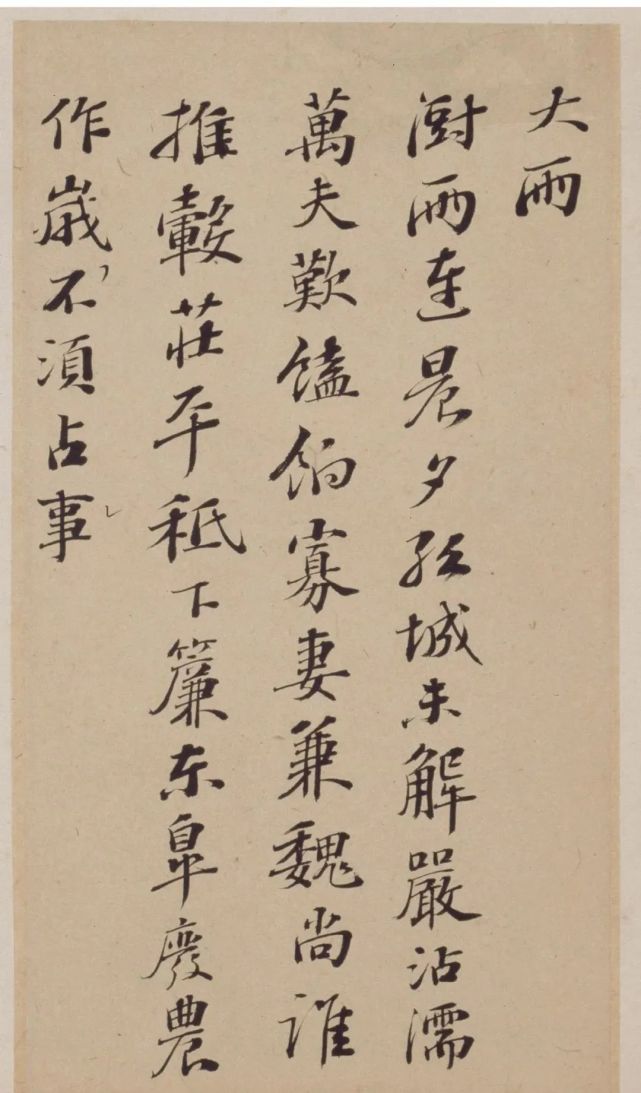 大雨
澍雨連晨夕孤城未解嚴沾濡
萬夫歎饁餉寡妻兼魏尚誰
推轂莊平秪下簾東皐廢農
作歲不須占事